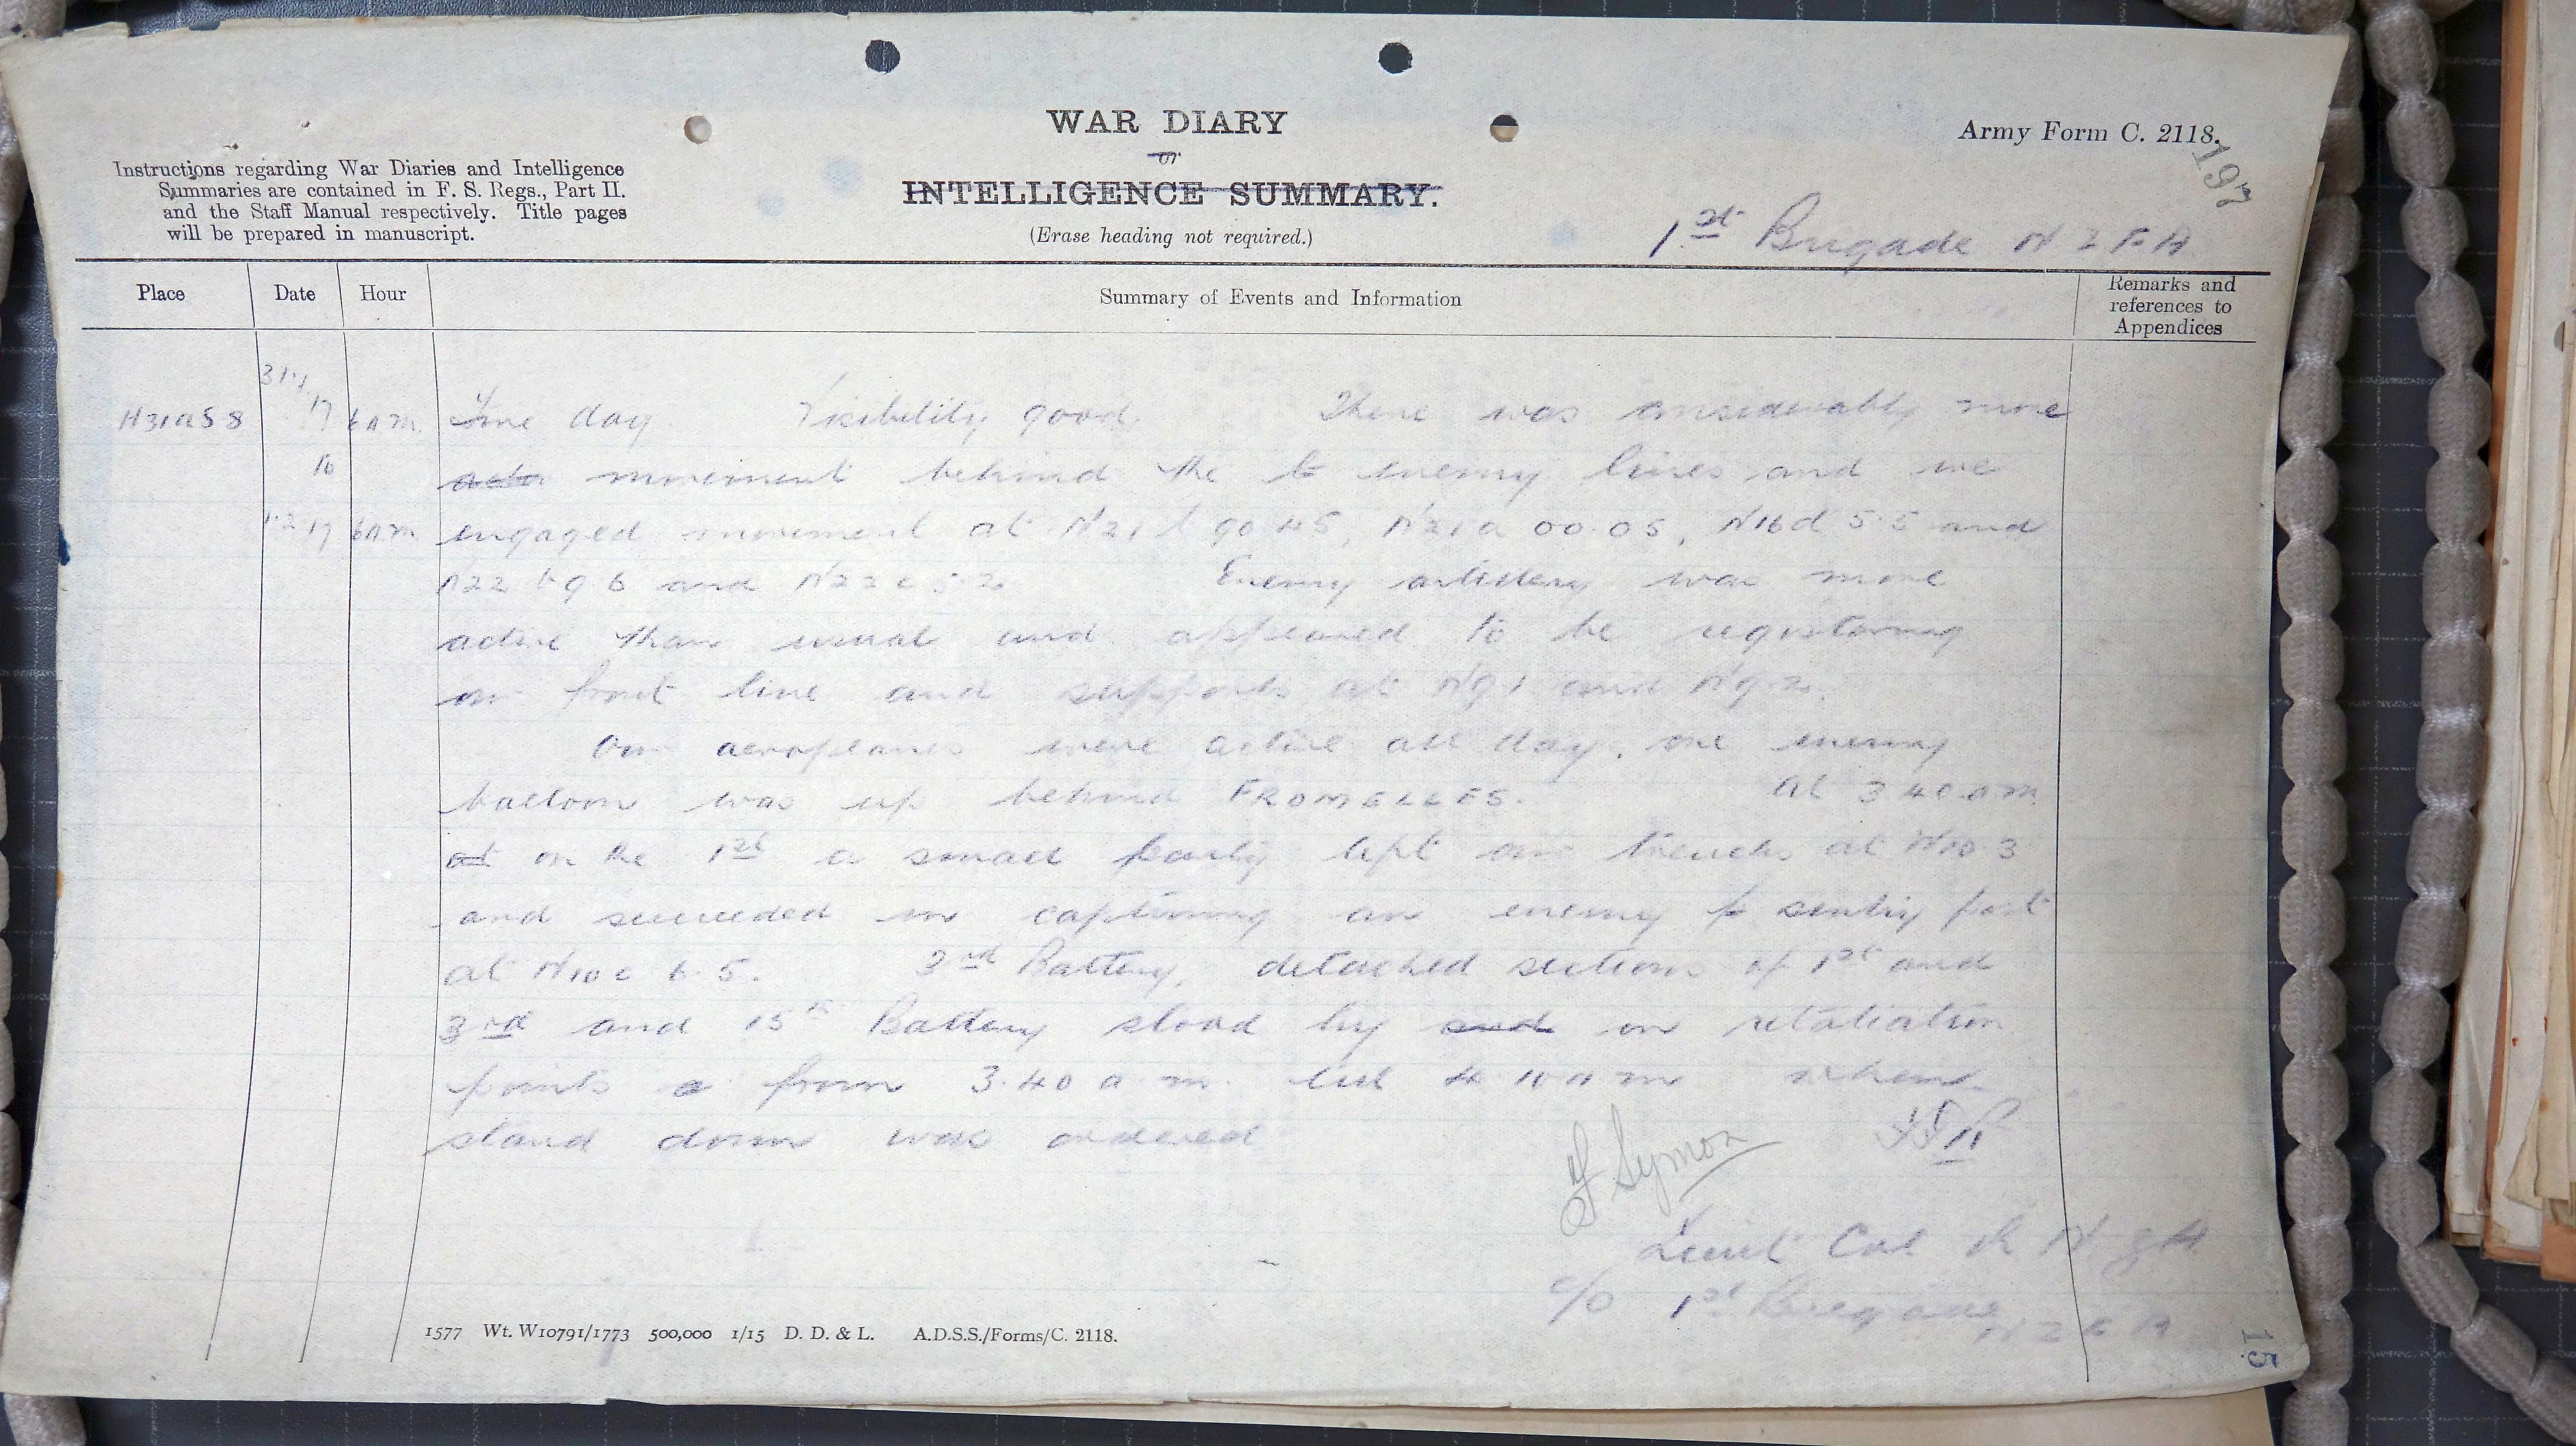 WAR DIARY
or
INTELLIGENCE SUMMARY.
(Erase heading not required.)
Army Form C. 2118.
197
Instructions regarding War Diaries and Intelligence
Summaries are contained in F. S. Regs., Part II.
and the Staff Manual respectively. Title pages
will be prepared in manuscript.
1st Brigade N Z F A
Place Date Hour Summary of Events and Information Remarks and
references to
Appendices
H31a58 31.1.17 6 a.m. Fine day Visibility good. There was considerably more
to movement behind the enemy lines and we
1.2.17 6 a.m. engaged movement at N21 b 90.45, N21a 00.05, N16d 5.5 and
N22 b 9 6 and N22 c 5.2. Enemy artillery was more
active than usual and appeared to be registering
on front line and supports at N9.1 and N9.2.
Our aeroplanes were active all day, one enemy
balloon was up behind FROMELLES. At 3 40 a m
at on the 1st a small party left our trenches at N10.3
and succeeded in capturing an enemy p sentry post
at N10 c 6.5. 3rd Battery, detached sections of 1st and
3rd and 15th Battery stood by and on retaliation
points from 3.40 a.m. till 4.10 a m when
stand down was ordered
F Symon
Lieut Col R N Z A
c/o 1st Brigade
N Z F A
1577 Wt. W10791/1773 500,000 1/15 D. D. & L. A.D.S.S./Forms/C. 2118.
15